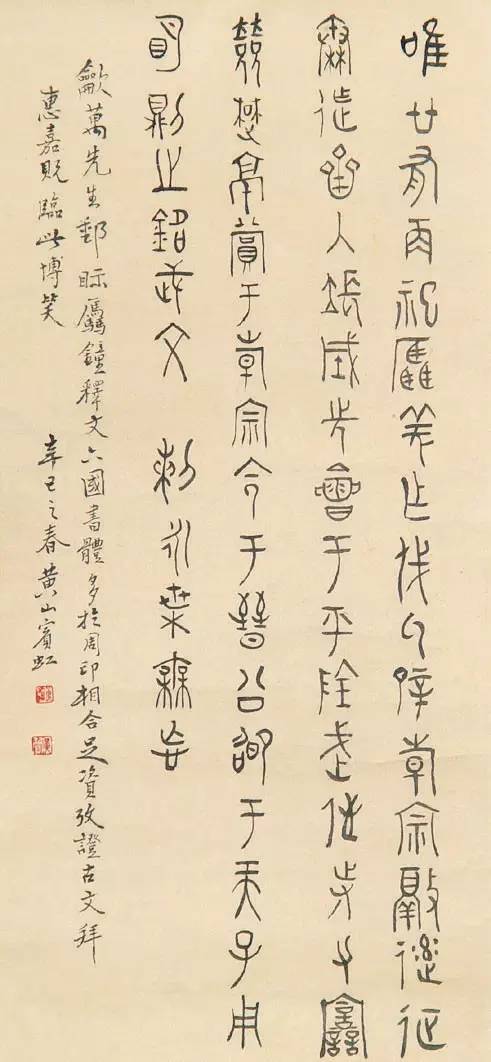 唯廿又再祀驫羌乍戎氒辟倝宗敲逹征
秦迮齊入長城先會于平陰武侄寺力譶
敓楚京賞于倝宗令于晉公卲于天子用
明則之銘武文 剌永枼毋忘
萬先生郵眎驫鐘釋文六國書體多於周印相合足資攷證古文拜
惠嘉貺臨此博笑 辛巳之春黃山賓虹